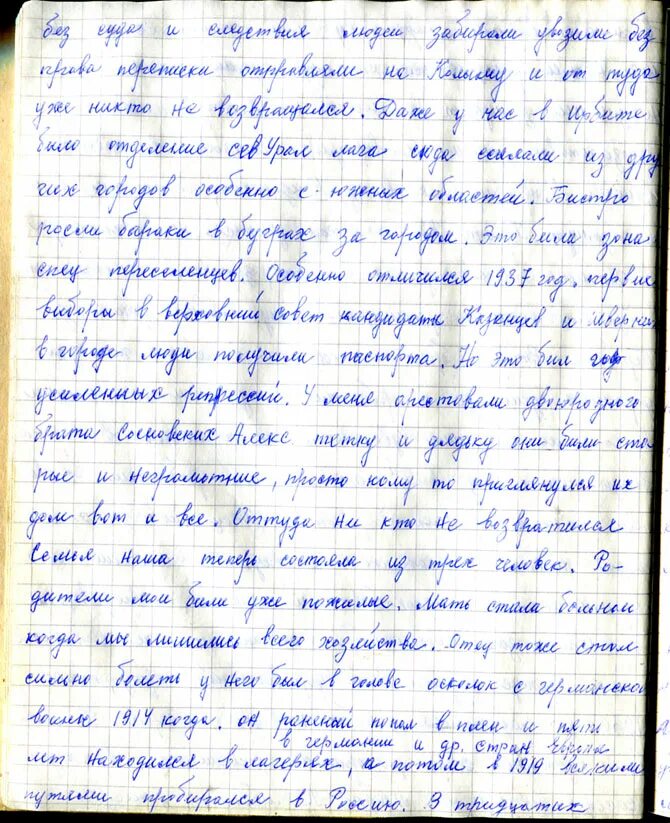 без суда и следствия людей забирали увозили без
права переписки отправляли на Колыму и от туда
уже никто не возвращался. Даже у нас в Ирбите
было отделение севУрал лага сюда ссылали из дру
гих городов особенно с южных областей. Быстро
росли бараки в буграх за городом. Это была зона
спец переселенцев. Особенно отличился 1937 год. первые
выборы в верховный совет кандидаты Казанцев и
в городе люди получили паспорта. Но это был год
усиленных репрессий. У меня арестовали двоюродного
брата Сосновских Алекс тетку и дядьку они были ста
рые и неграмотные, просто кому то приглянулся их
дом вот и все. Оттуда ни кто не возвратился
Семья наша теперь состояла из трех человек. Ро-
дители мои были уже пожилые. Мать стала больной
когда мы лишились всего хозяйства. Отец тоже стал
сильно болеть у него был в голове осколок с германской
войны 1914 когда. он раненый попал в плен и пять
в германии и др. стран
лет находился в лагерях, а потом в 1919 всякими
путями пробирался в Россию. В тридцатих